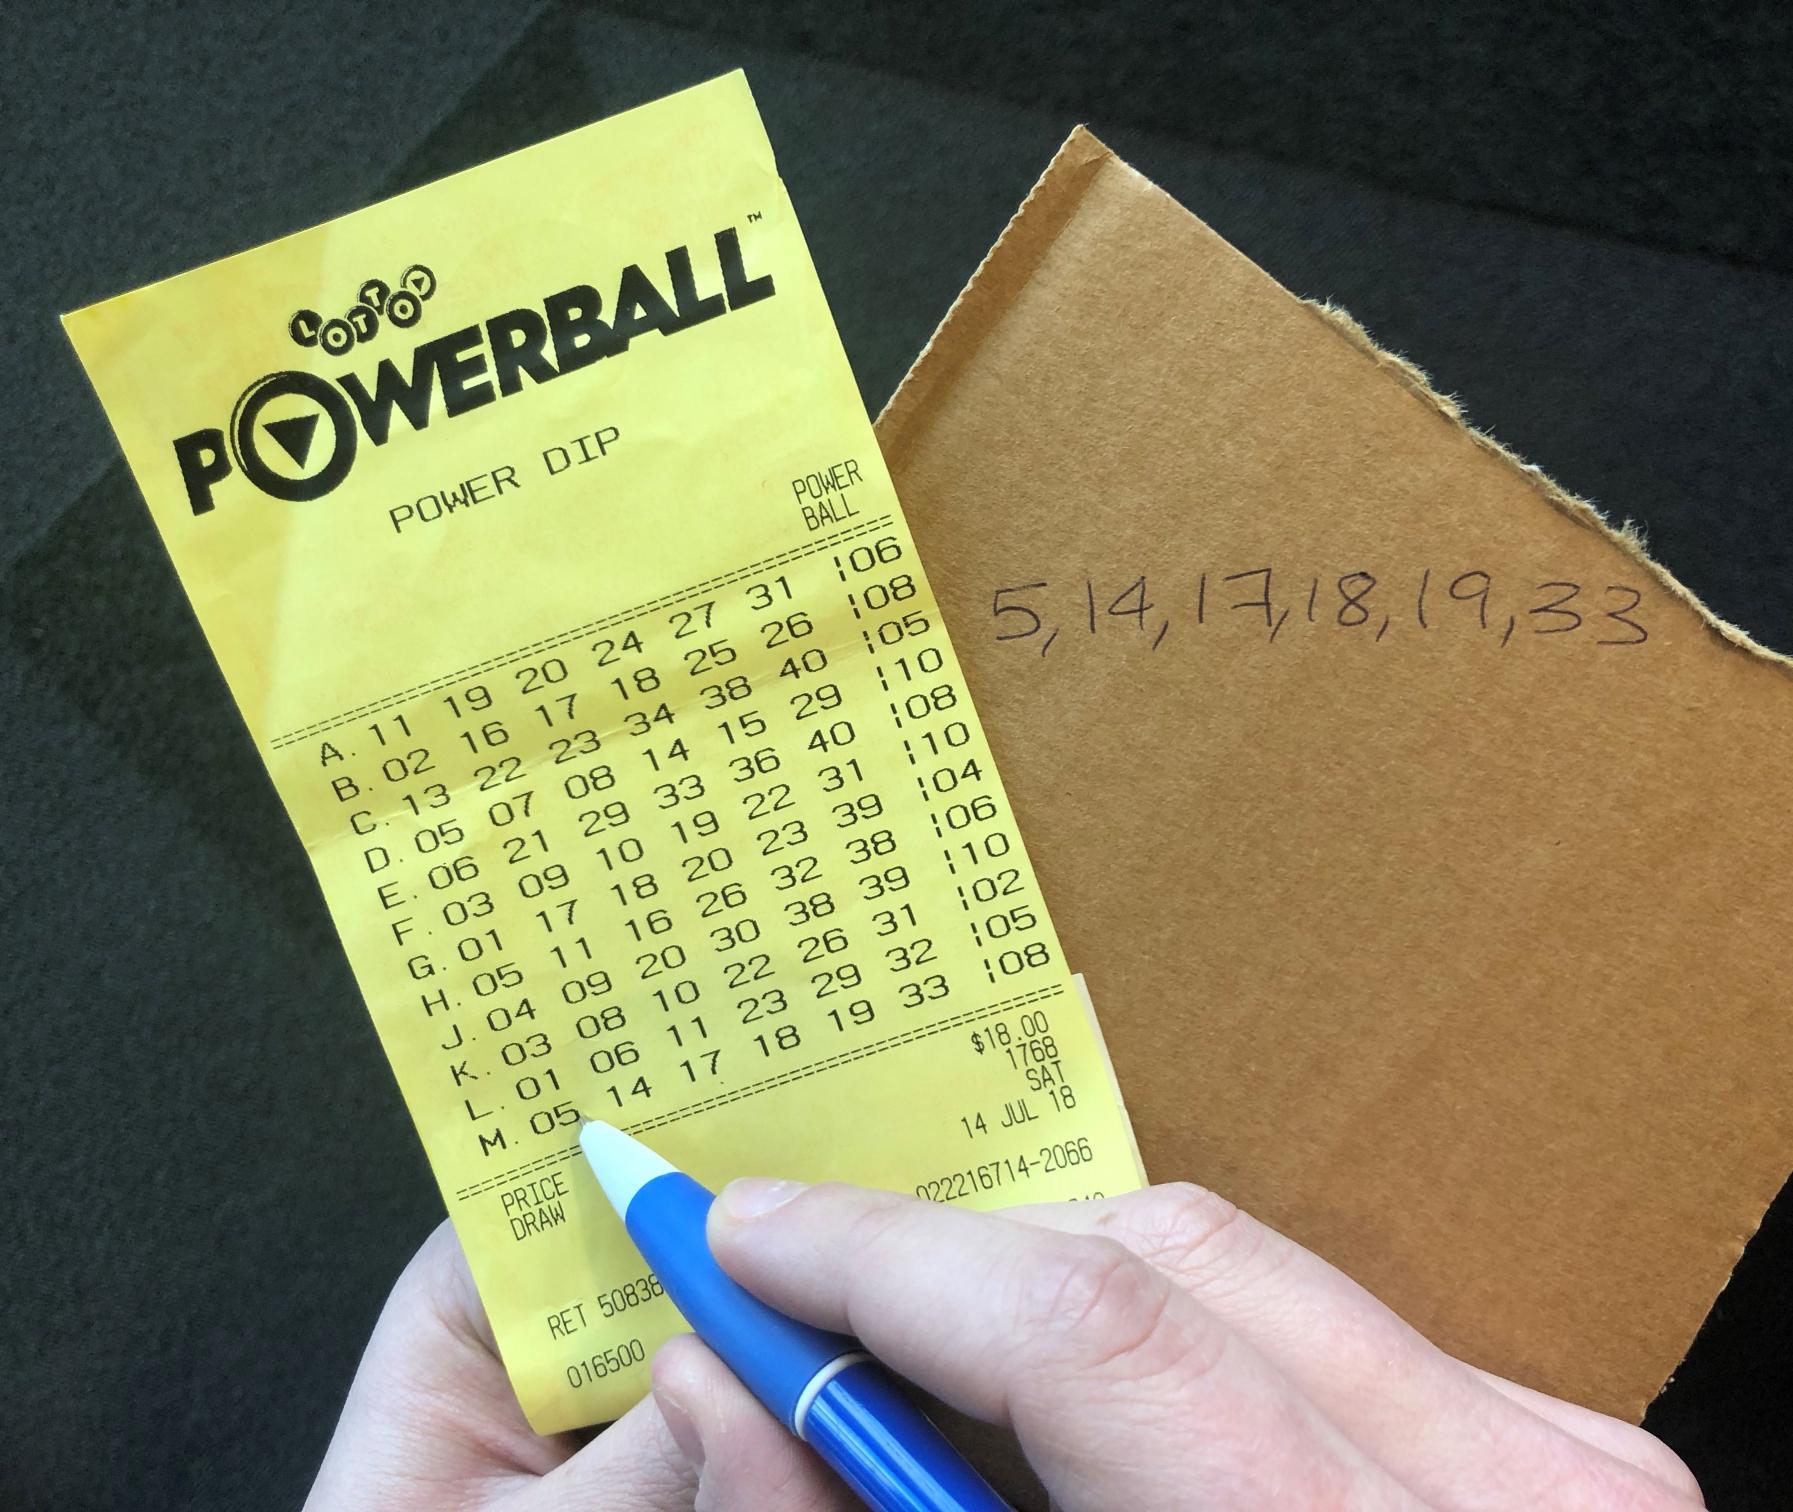 LOTTO
POWERBALL™
POWER DIP
POWER
BALL
A. 11 19 20 24 27 31 ¦06
B. 02 16 17 18 25 26 ¦08
C. 13 22 23 34 38 40 ¦05
D. 05 07 08 14 15 29 ¦10
E. 06 21 29 33 36 40 ¦08
F. 03 09 10 19 22 31 ¦10
G. 01 17 18 20 23 39 ¦04
H. 05 11 16 26 32 38 ¦06
J. 04 09 20 30 38 39 ¦10
K. 03 08 10 22 26 31 ¦02
L. 01 06 11 23 29 32 ¦05
M. 05 14 17 18 19 33 ¦08
PRICE $18.00
DRAW 1768
SAT
14 JUL 18
022216714-2066
RET 50838
016500
5, 14, 17, 18, 19, 33